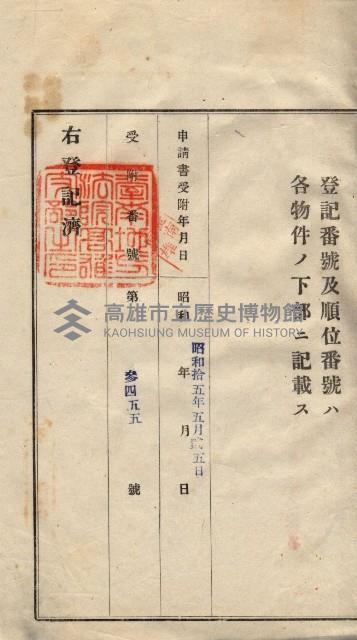 登記番號及順位番號ハ
各物件ノ下部ニ記載ス
申請書受附年月日 昭和 年 月 日
昭和拾五年五月貳五日
受附番號 第 參四五五 號
右登記濟
臺南地方法院高雄支部之印
高雄市立歷史博物館
KAOHSIUNG MUSEUM OF HISTORY